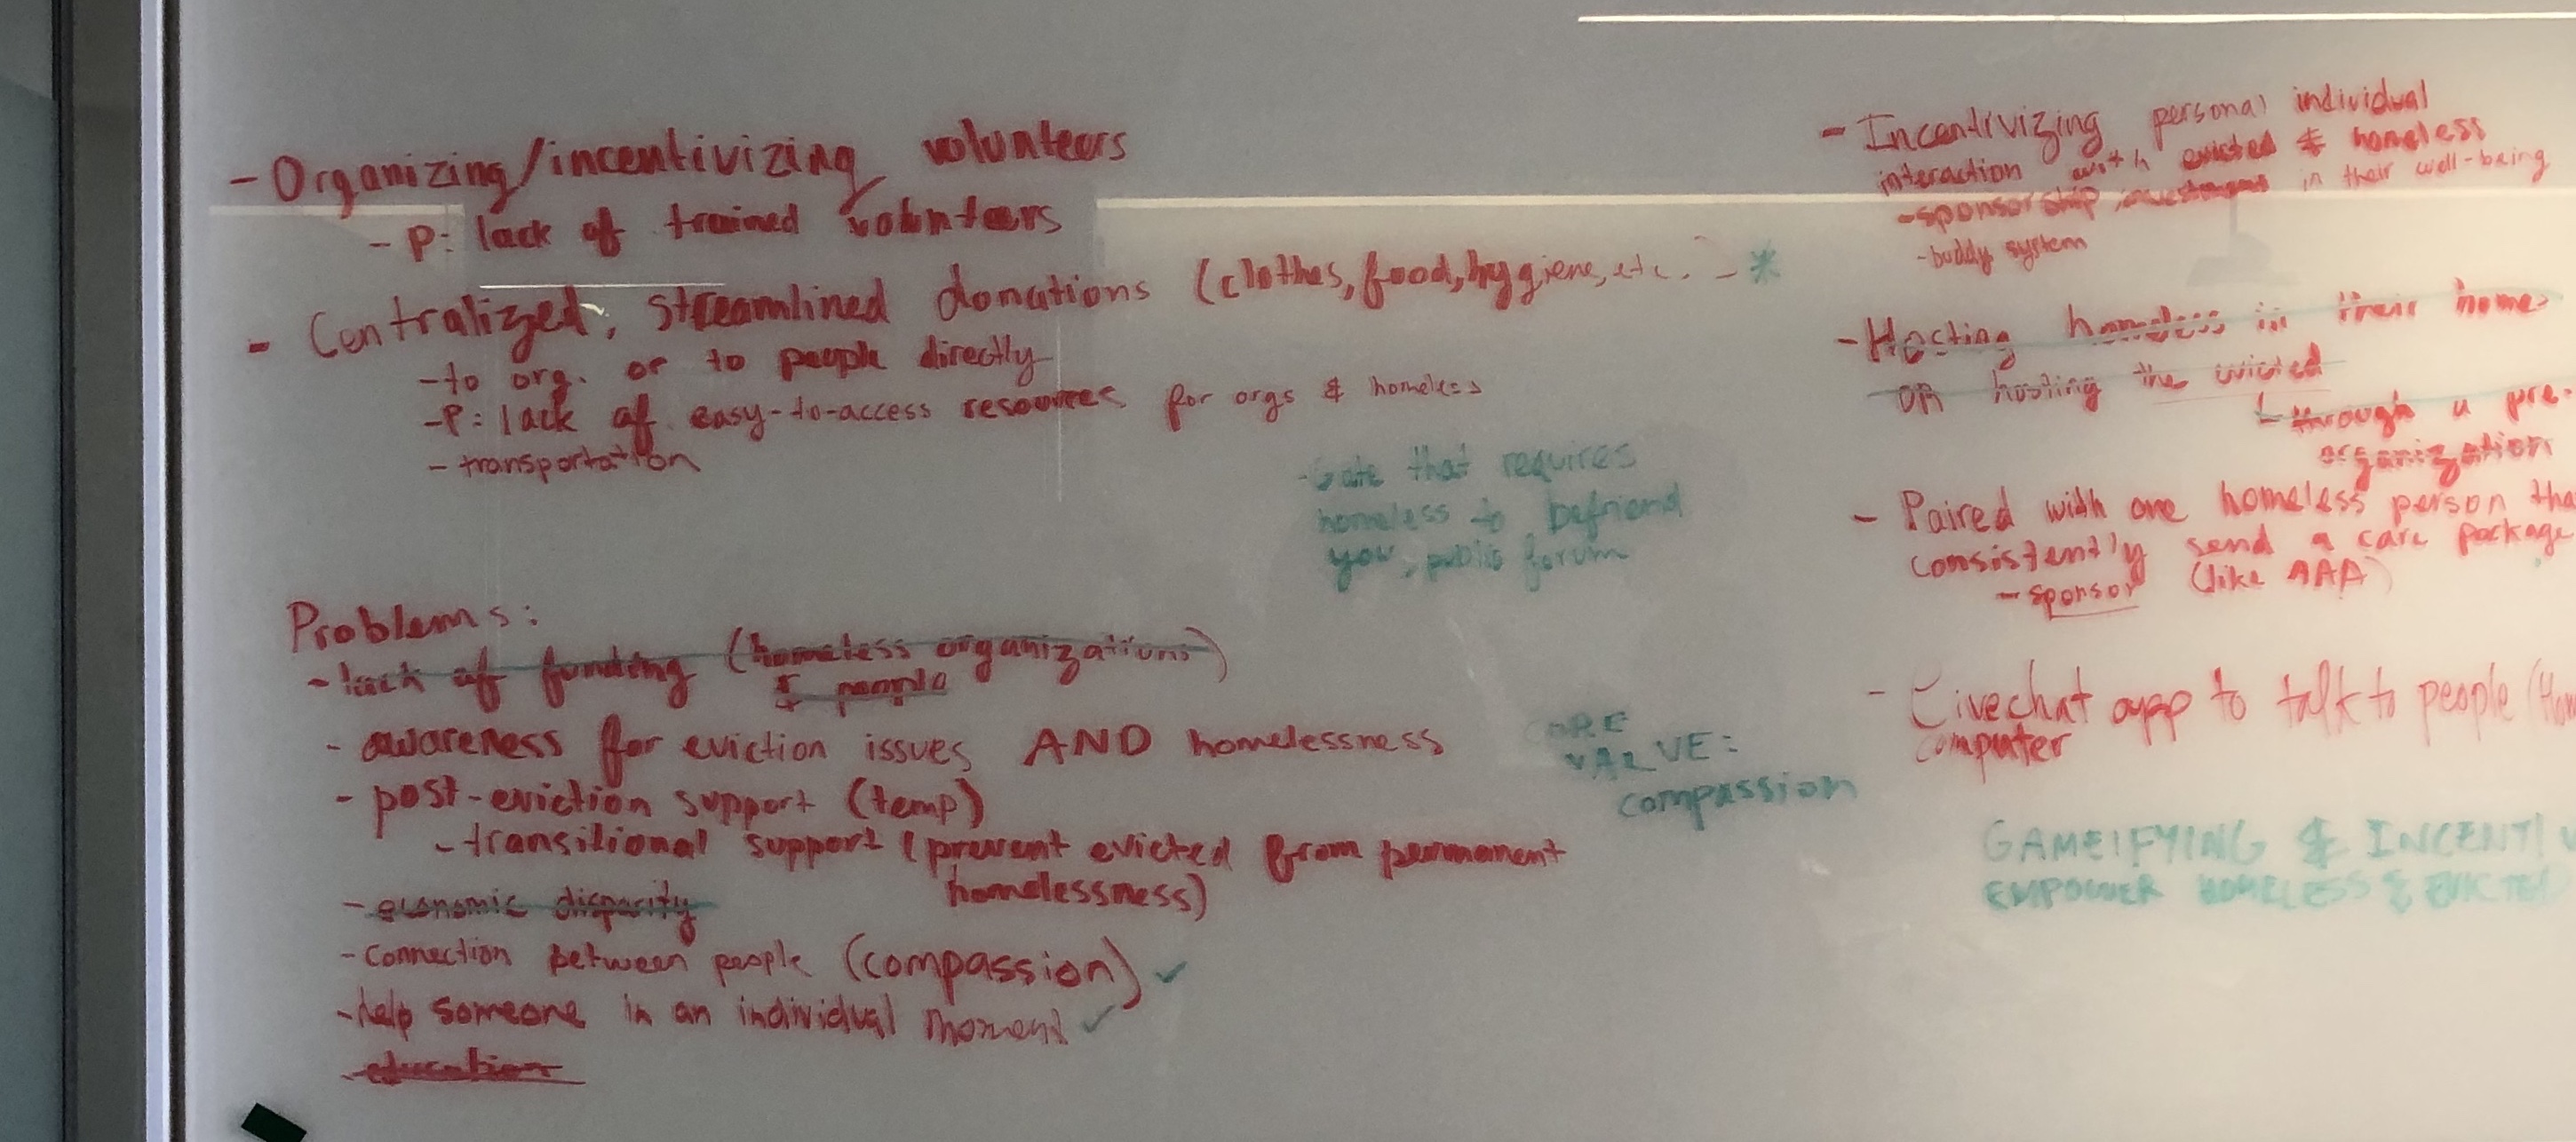 - Organizing/incentivizing volunteers
- P: lack of trained volunteers
- Centralized, streamlined donations (clothes, food, hygiene, etc.) - *
- to org. or to people directly
- P: lack of easy-to-access resources for orgs & homeless
- transportation
- Gate that requires
homeless to befriend
you, public forum
Problems:
- lack of funding (homeless organizations)
& people
- awareness for eviction issues AND homelessness
- post-eviction support (temp)
- transitional support (prevent evicted from permanent
homelessness)
- economic disparity
- connection between people (compassion) ✓
- help someone in an individual moment ✓
- education
CORE
VALUE:
compassion
- Incentivizing personal individual
interaction with evicted & homeless
- sponsorship, investment in their well-being
- buddy system
- Hosting homeless in their home
OR hosting the evicted
through a pre-
organization
- Paired with one homeless person tha
consistently send a care package
- sponsor (like AAA)
- Livechat app to talk to people (
computer
GAMEIFYING & INCENTIV
EMPOWER HOMELESS & EVICTED